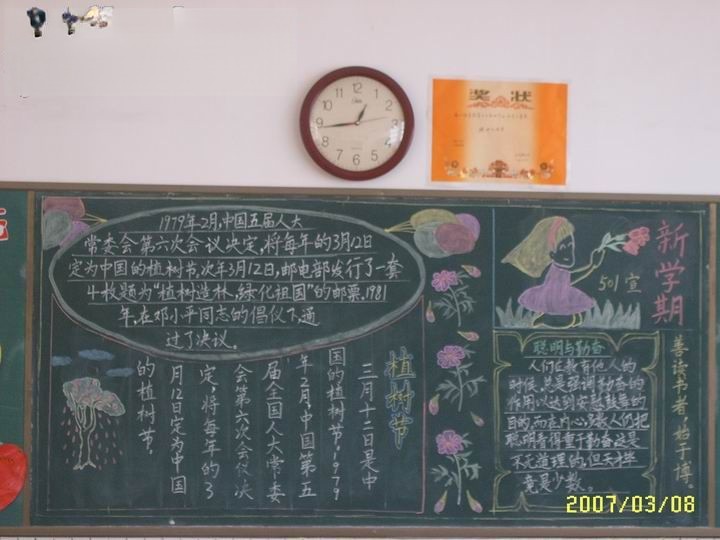 奖状
12
1
2
3
4
5
6
7
8
9
10
11
1979年2月,中国五届人大
常委会第六次会议决定,将每年的3月12日
定为中国的植树节,次年3月12日,邮电部发行了一套
4枚题为"植树造林,绿化祖国"的邮票.1981
年,在邓小平同志的倡仪下,通
过了决议。
植树节
三月十二日是中
国的植树节,1979
年2月中国第五
届全国人大常委
会第六次会仪决
定,将每年的3
月12日定为中国
的植树节,
新学期
501宣
聪明与勤奋
人们在教育他人的
时候,总是强调勤奋的
作用以达到安慰鼓舞的
目的,而在内心深处人们把
聪明看得重于勤奋这是
不无道理的,但天才毕
竟是少数。
善读书者,始于博。
2007/03/08